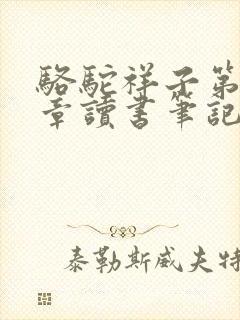 駱駝祥子第
章讀書筆記
泰勒斯威夫特